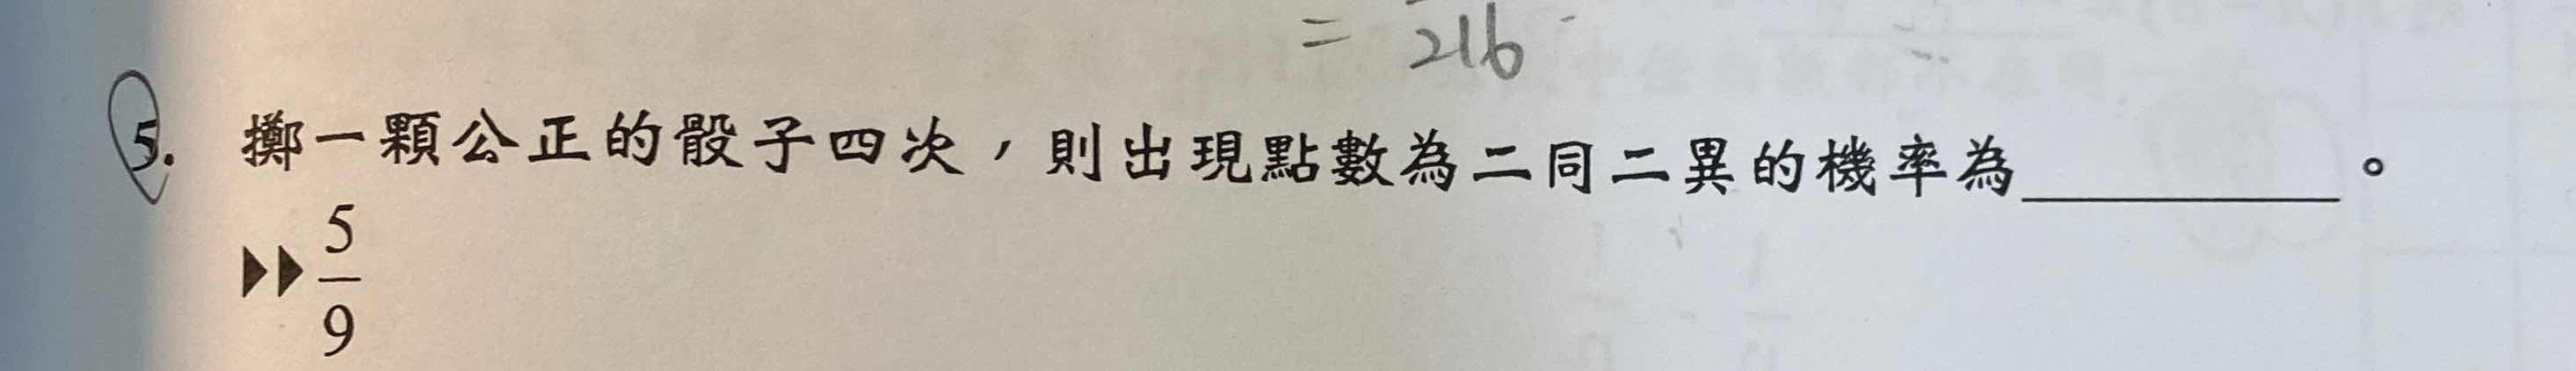 = 216
5. 擲一顆公正的骰子四次，則出現點數為二同二異的機率為__________。
▶▶ 5/9